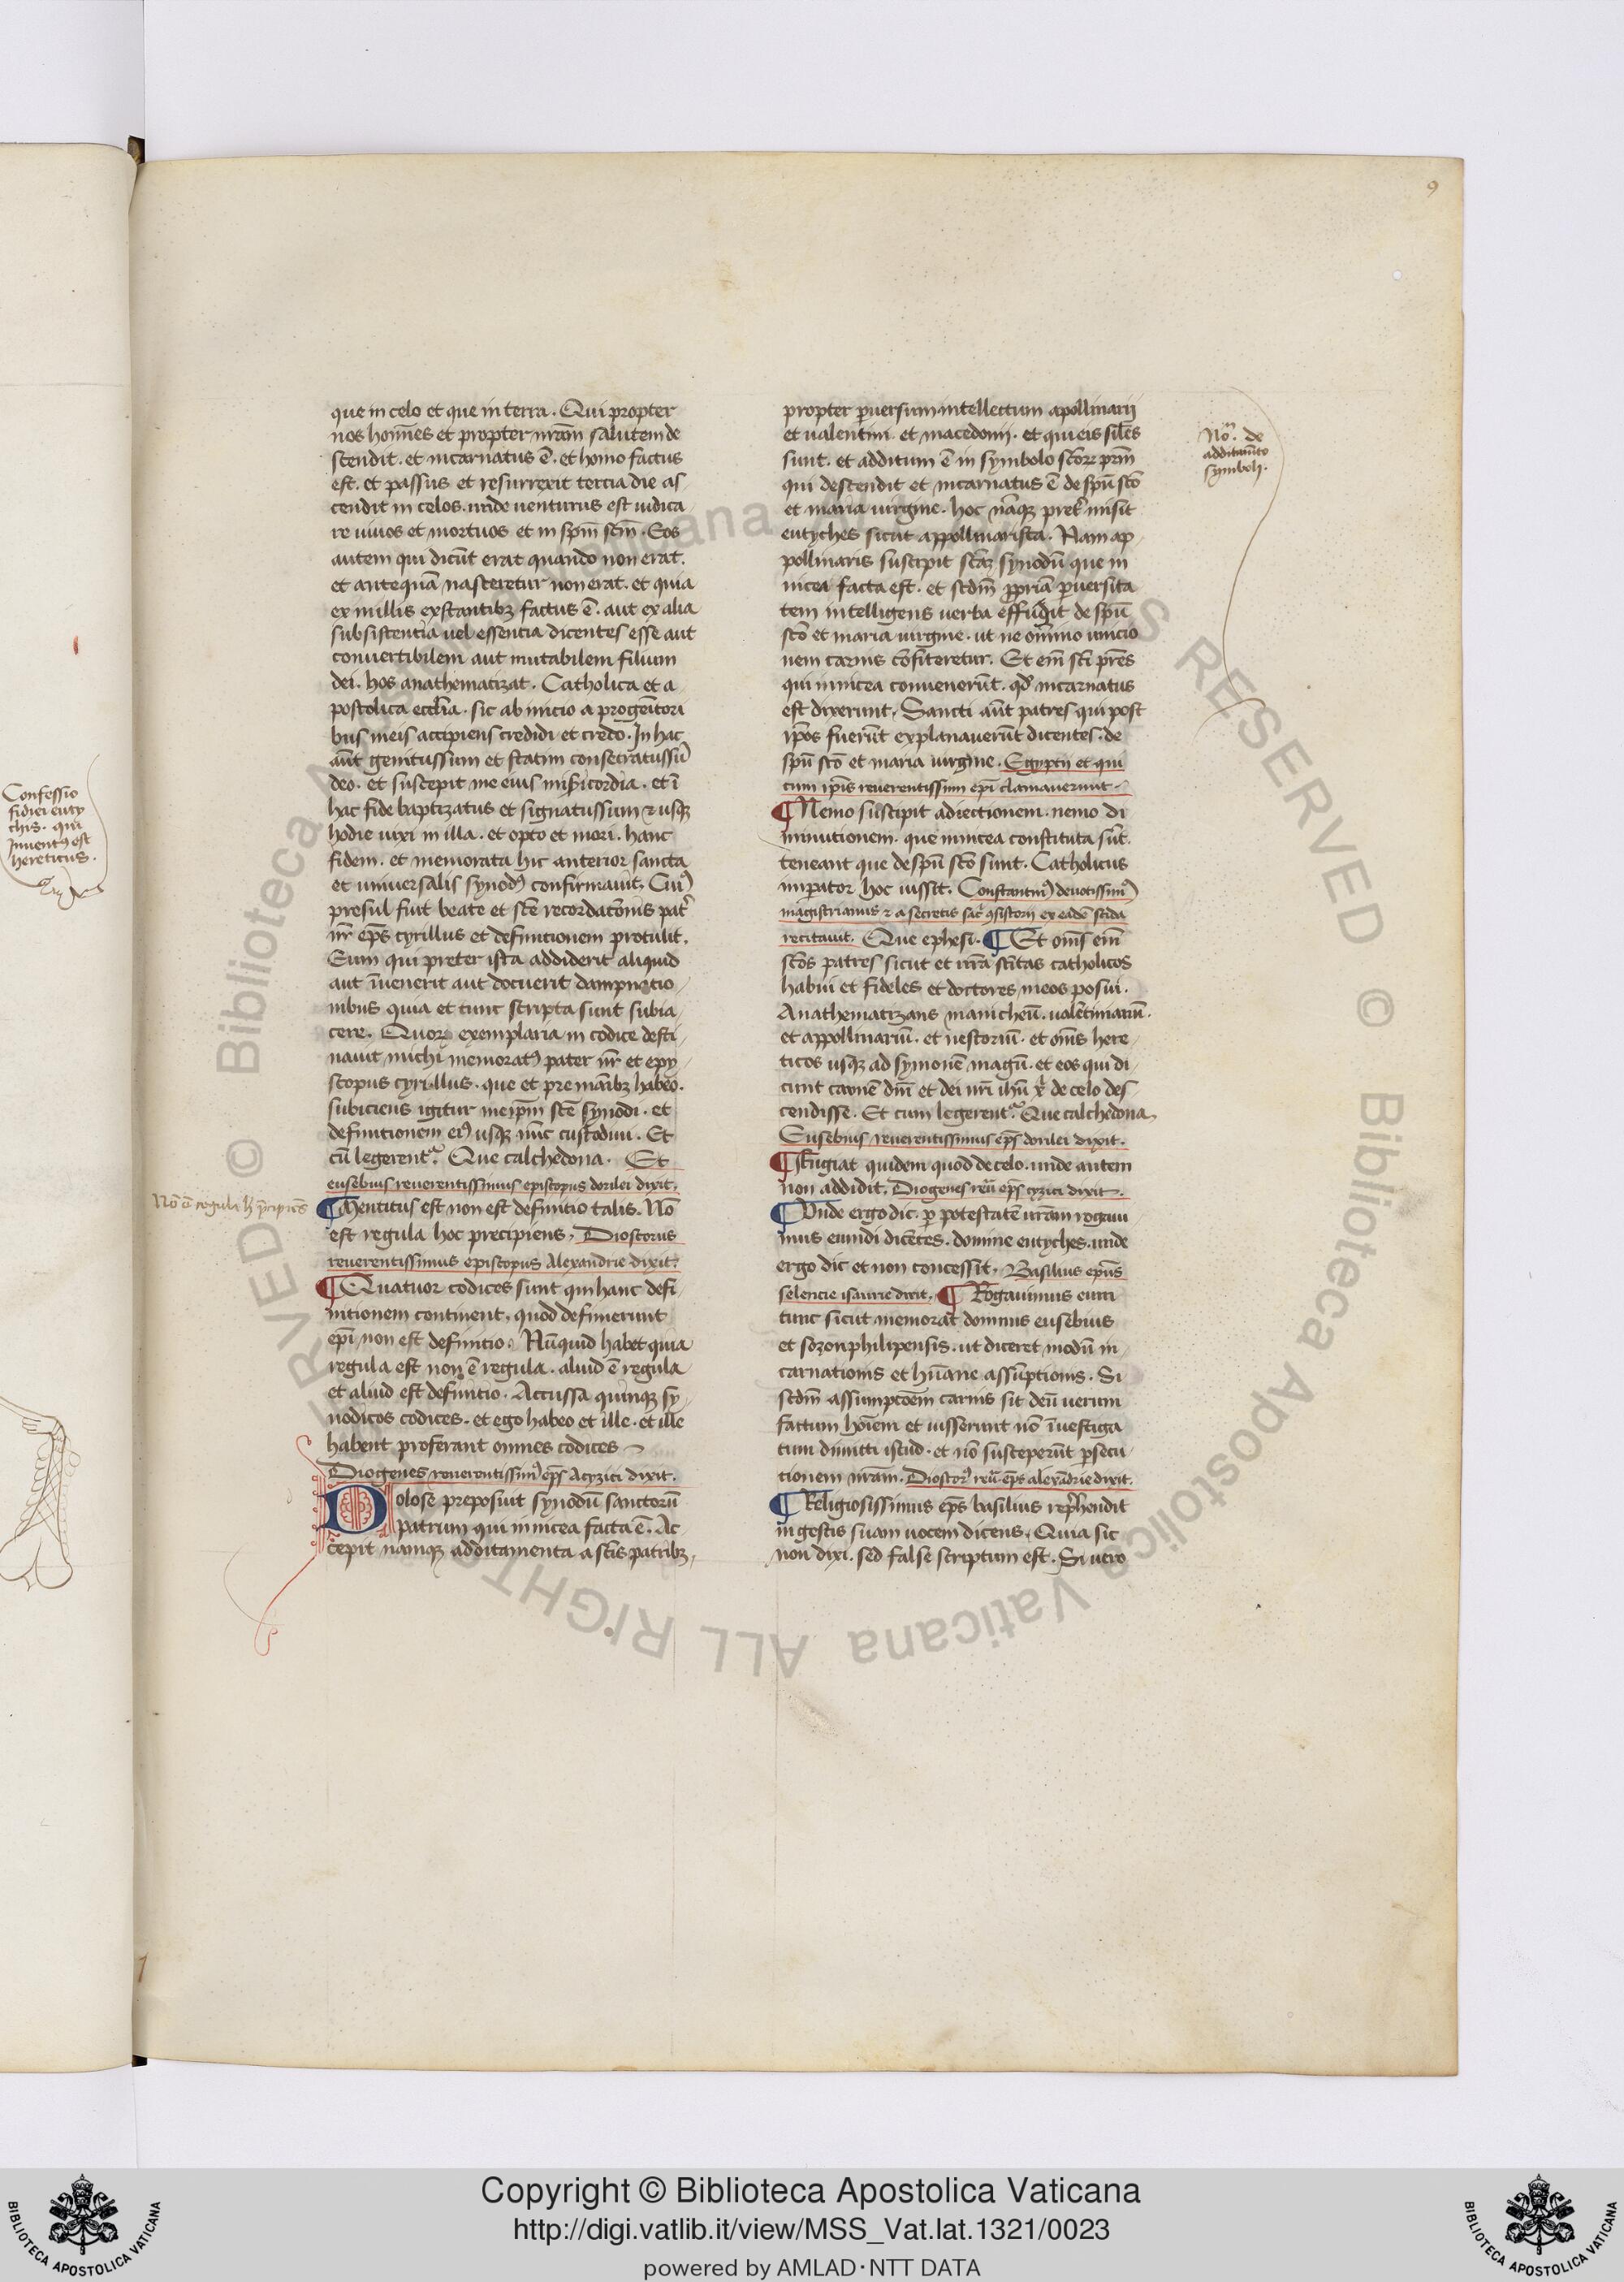 9
que in celo et que in terra. Qui propter
nos hom̄es et propter nr̄am salutem de
scendit. et incarnatus ē. et homo factus
est. et passus et resurrexit tercia die as
cendit in celos. unde uenturus est iudica
re uiuos et mortuos et in spm̄ scm̄. Eos
autem qui dicūt erat quando non erat.
et antequā nasceretur non erat. et quia
ex nullis exstantibꝫ factus ē. aut ex alia
subsistentia uel essentia dicentes esse aut
conuertibilem aut mutabilem filium
dei. hos anathematizat. Catholica et a
postolica eccl̄ia. sic ab inicio a progenitori
bus meis accipiens credidi et credo. In hac
aūt genitus sum et statim consecratus sū
deo. et suscepit me eius mis̄icordia. et ī
hac fide baptizatus et signatus sum ⁊ usqꝫ
hodie uixi in illa. et opto et mori. hanc
fidem. et memorata hic anterior sancta
et uniuersalis synodꝰ confirmauit. Cuiꝰ
presul fuit beate et scē recordatōnis pat̄
nr̄ ep̄s cyrillus et definitionem protulit.
Eum qui preter ista addiderit aliquid
aut īuenerit aut docuerit dampnatio
nibus quia et tunc scripta sunt subia
cere. Quoꝝ exemplaria in codice desti
nauit michi memoratꝰ pater nr̄ et epy
scopus cyrillus. que et pre manibꝫ habeo.
subiciens igitur meipm̄ scē synodi. et
definitionem eiꝰ usqꝫ nūc custodiui. Et
cū legerent̄. Que calchedona. Et
eusebius reuerentissimus episcopus dorilei dixit.
¶ Mentitus est non est definitio talis. Nō
est regula hoc precipiens. Dioscorus
reuerentissimus episcopus Alexandrie dixit.
¶ Quatuor codices sunt qui hanc defi
nitionem continent. quod definierunt
ep̄i non est definitio. Nūquid habet quia
regula est non ē regula. aliud ē regula
et aliud est definitio. Accussa quinqꝫ sy
nodicos codices. et ego habeo et ille. et ille
habent proferant omnes codices
Diogenes reuerentissimꝰ ep̄s Acyzici dixit.
Dolose preposuit synodū sanctorū
patrum qui in nicea facta ē. Ac
cepit namqꝫ additamenta a scīs patribꝫ.
propter ꝑuersum intellectum apollinarii
et ualentini et macedonij. et qui eis sil̄es
sunt. et additum ē in symbolo scōꝝ prm̄
qui descendit et incarnatus ē de spū scō
et maria uirgine. hoc nāqꝫ pret̄ misit
eutyches sicut appollinarista. Nam ap
pollinaris suscipit scāꝫ synodū que in
nicea facta est. et scdm̄ ꝓpriā ꝑuersita
tem intelligens uerba effugit de spū
scō et maria uirgine. ut ne om̄ino unicio
nem carnis cōfiteretur. Et em̄ scī pr̄es
qui in nicea conuenerūt. qd̄ incarnatus
est dixerunt. Sancti aūt patres qui post
ip̄os fuerūt explanauerūt dicentes. de
spū scō et maria uirgine. Egyptij et qui
cum ip̄is reuerentissimi ep̄i clamauerunt.
¶ Nemo suscipit adiectionem. nemo di
minutionem. que in nicea constituta sūt.
teneant que de spū scō sunt. Catholicus
imperator hoc iussit. Constantinꝰ deuotissimꝰ
magistrianus ⁊ a secretis sac̄ ꝯsistorij ex eadē scida
recitauit. Que ephesi. ¶ Et om̄s em̄
scōs patres sicut et ur̄a scītas catholicos
habui et fideles et doctores meos posui.
Anathematizans manicheū. ualētinianū.
et appollinariū. et nestoriū. et om̄s here
ticos usqꝫ ad symonē magū. et eos qui di
cunt carnē dn̄i et dei nr̄i ihū xp̄i de celo des
cendisse. Et cum legerent̄. Que calchedona.
Eusebius reuerentissimus ep̄s dorilei dixit.
¶ Fugiat quidem quod de celo. unde autem
non addidit. Diogenes reū ep̄s cyzici dixit.
¶ Unde ergo dic. ꝑ potestatē ur̄am rogaui
mus eundi dicētes. domine eutyches. unde
ergo dic et non concessit. Basilius epūs
selencie isaurie dixit. ¶ Rogauimus eum
tunc sicut memorat domnus eusebius
et sozon philipensis. ut diceret modū in
carnationis et hūane assūptionis. Si
scdm̄ assumptōem carnis sit deū uerum
factum hoīem et iusserunt nō īuestiga
tum dimitti istud. et nō susceperūt ꝑsecu
tionem nr̄am. Dioscorꝰ reū ep̄s alexādrie dixit.
¶ Religiosissimus ep̄s basilius rep̄hendit
in gestis suam uocem dicens. Quia sic
non dixi. sed false scriptum est. Si uero
Nō. de
additamēto
symboli.
Confessio
fidei euty
chis. qui
Inuentꝰ est
hereticus.
Copyright © Biblioteca Apostolica Vaticana
http://digi.vatlib.it/view/MSS_Vat.lat.1321/0023
powered by AMLAD·NTT DATA
BIBLIOTECA APOSTOLICA VATICANA
BIBLIOTECA APOSTOLICA VATICANA